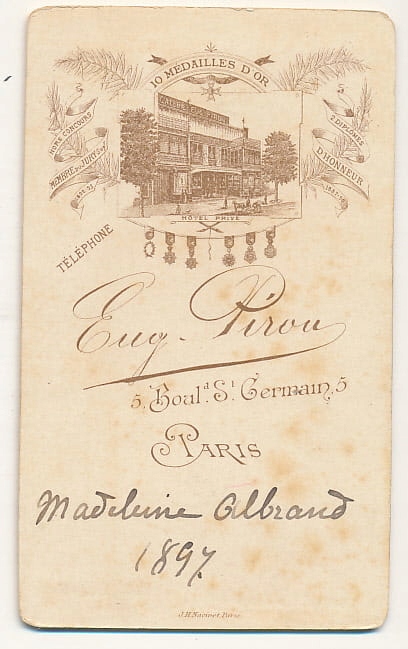 10 MÉDAILLES D'OR
HORS CONCOURS
MEMBRE DU JURY
2 DIPLÔMES
D'HONNEUR
HÔTEL PRIVÉ
TÉLÉPHONE
Eug. Pirou
5, Boul.d St Germain, 5
PARIS
Madeleine Albrand
1897